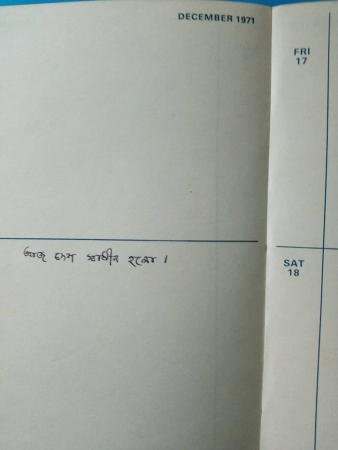 DECEMBER 1971
FRI
17
আজ দেশ স্বাধীন হলো ।
SAT
18